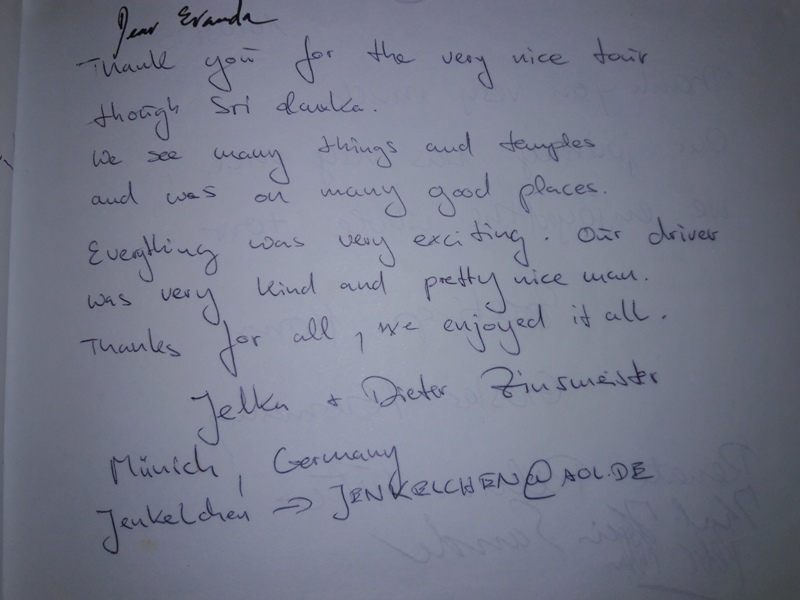 Dear Eranda
Thank you for the very nice tour
though Sri Lanka.
We see many things and temples
and was on many good places.
Everything was very exciting. Our driver
was very kind and pretty nice man.
Thanks for all, we enjoyed it all.
Jelka + Dieter Zinsmeister
Münich, Germany
Jenkelchen → JENKELCHEN@AOL.DE